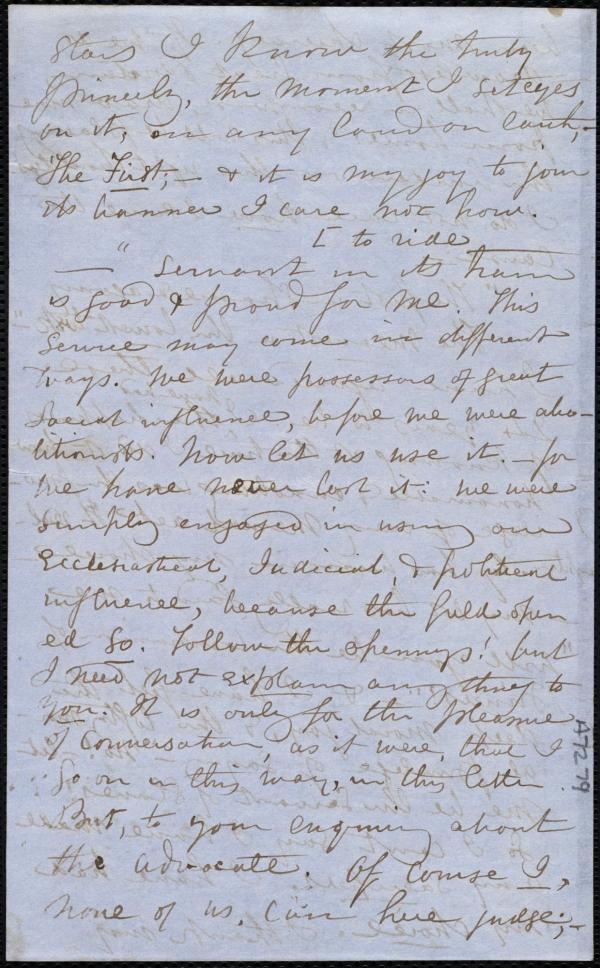 stars I know the truly
princely, the moment I set eyes
on it, on any Coud on earth,—
The First;— & it is my joy to join
its banner I care not how.
[ to ride
— " Servant in its train
is good & proud for me. This
Service may come in different
ways. We were possessors of great
Social influence, before we were abo-
litionists. Now let us use it.—for
we have never lost it: we were
simply engaged in using our
Ecclesiastical, Judicial, & political
influence, because the field open
ed so. Follow the openings! but
I need not explain any thing to
you. It is only for the pleasure
of Conversation, as it were, that I
go on in this way, in this letter
But, to your enquiry about
the advocate. Of course I,
none of us, can here judge;—
A7279